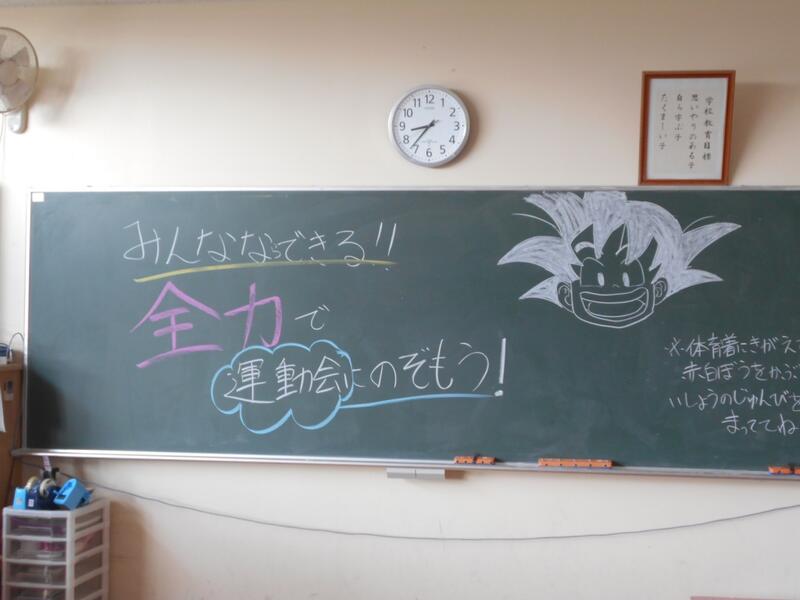 学校教育目標
思いやりのある子
自ら学ぶ子
たくましい子
みんなならできる!!
全力で
運動会にのぞもう!
※体育着にきがえて
赤白ぼうをかぶ
いしょうのじゅんびを
まっててね
12
1
2
3
4
5
6
7
8
9
10
11